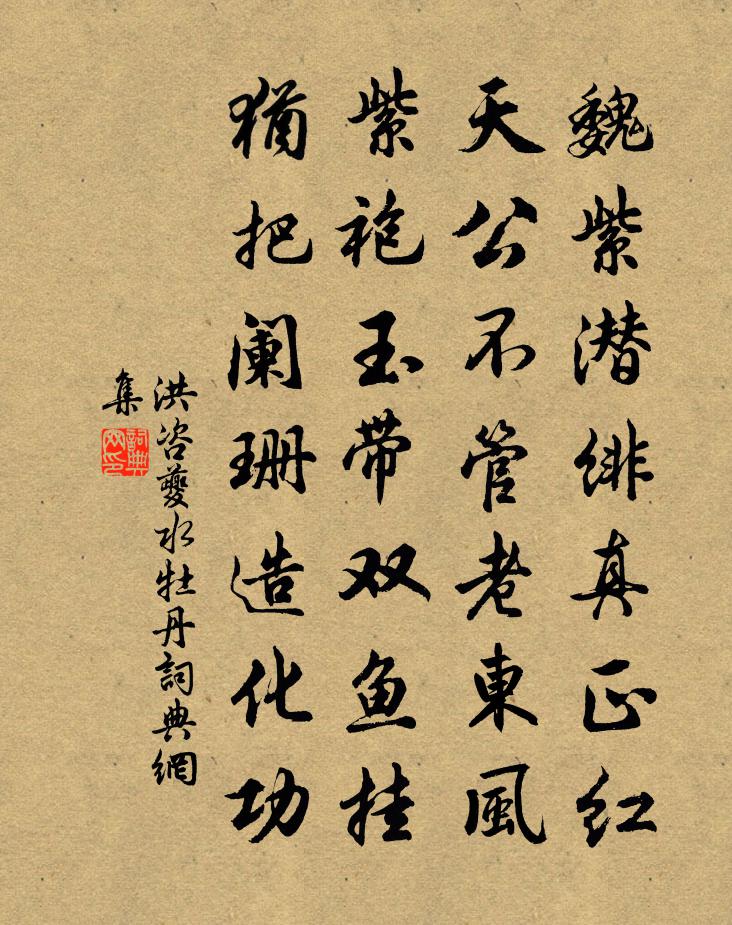 魏紫潜绯真正红
天公不管老東風
紫袍玉带双鱼挂
猶把阑珊造化功
洪咨夔水牡丹詞典網
集
詞典
网印